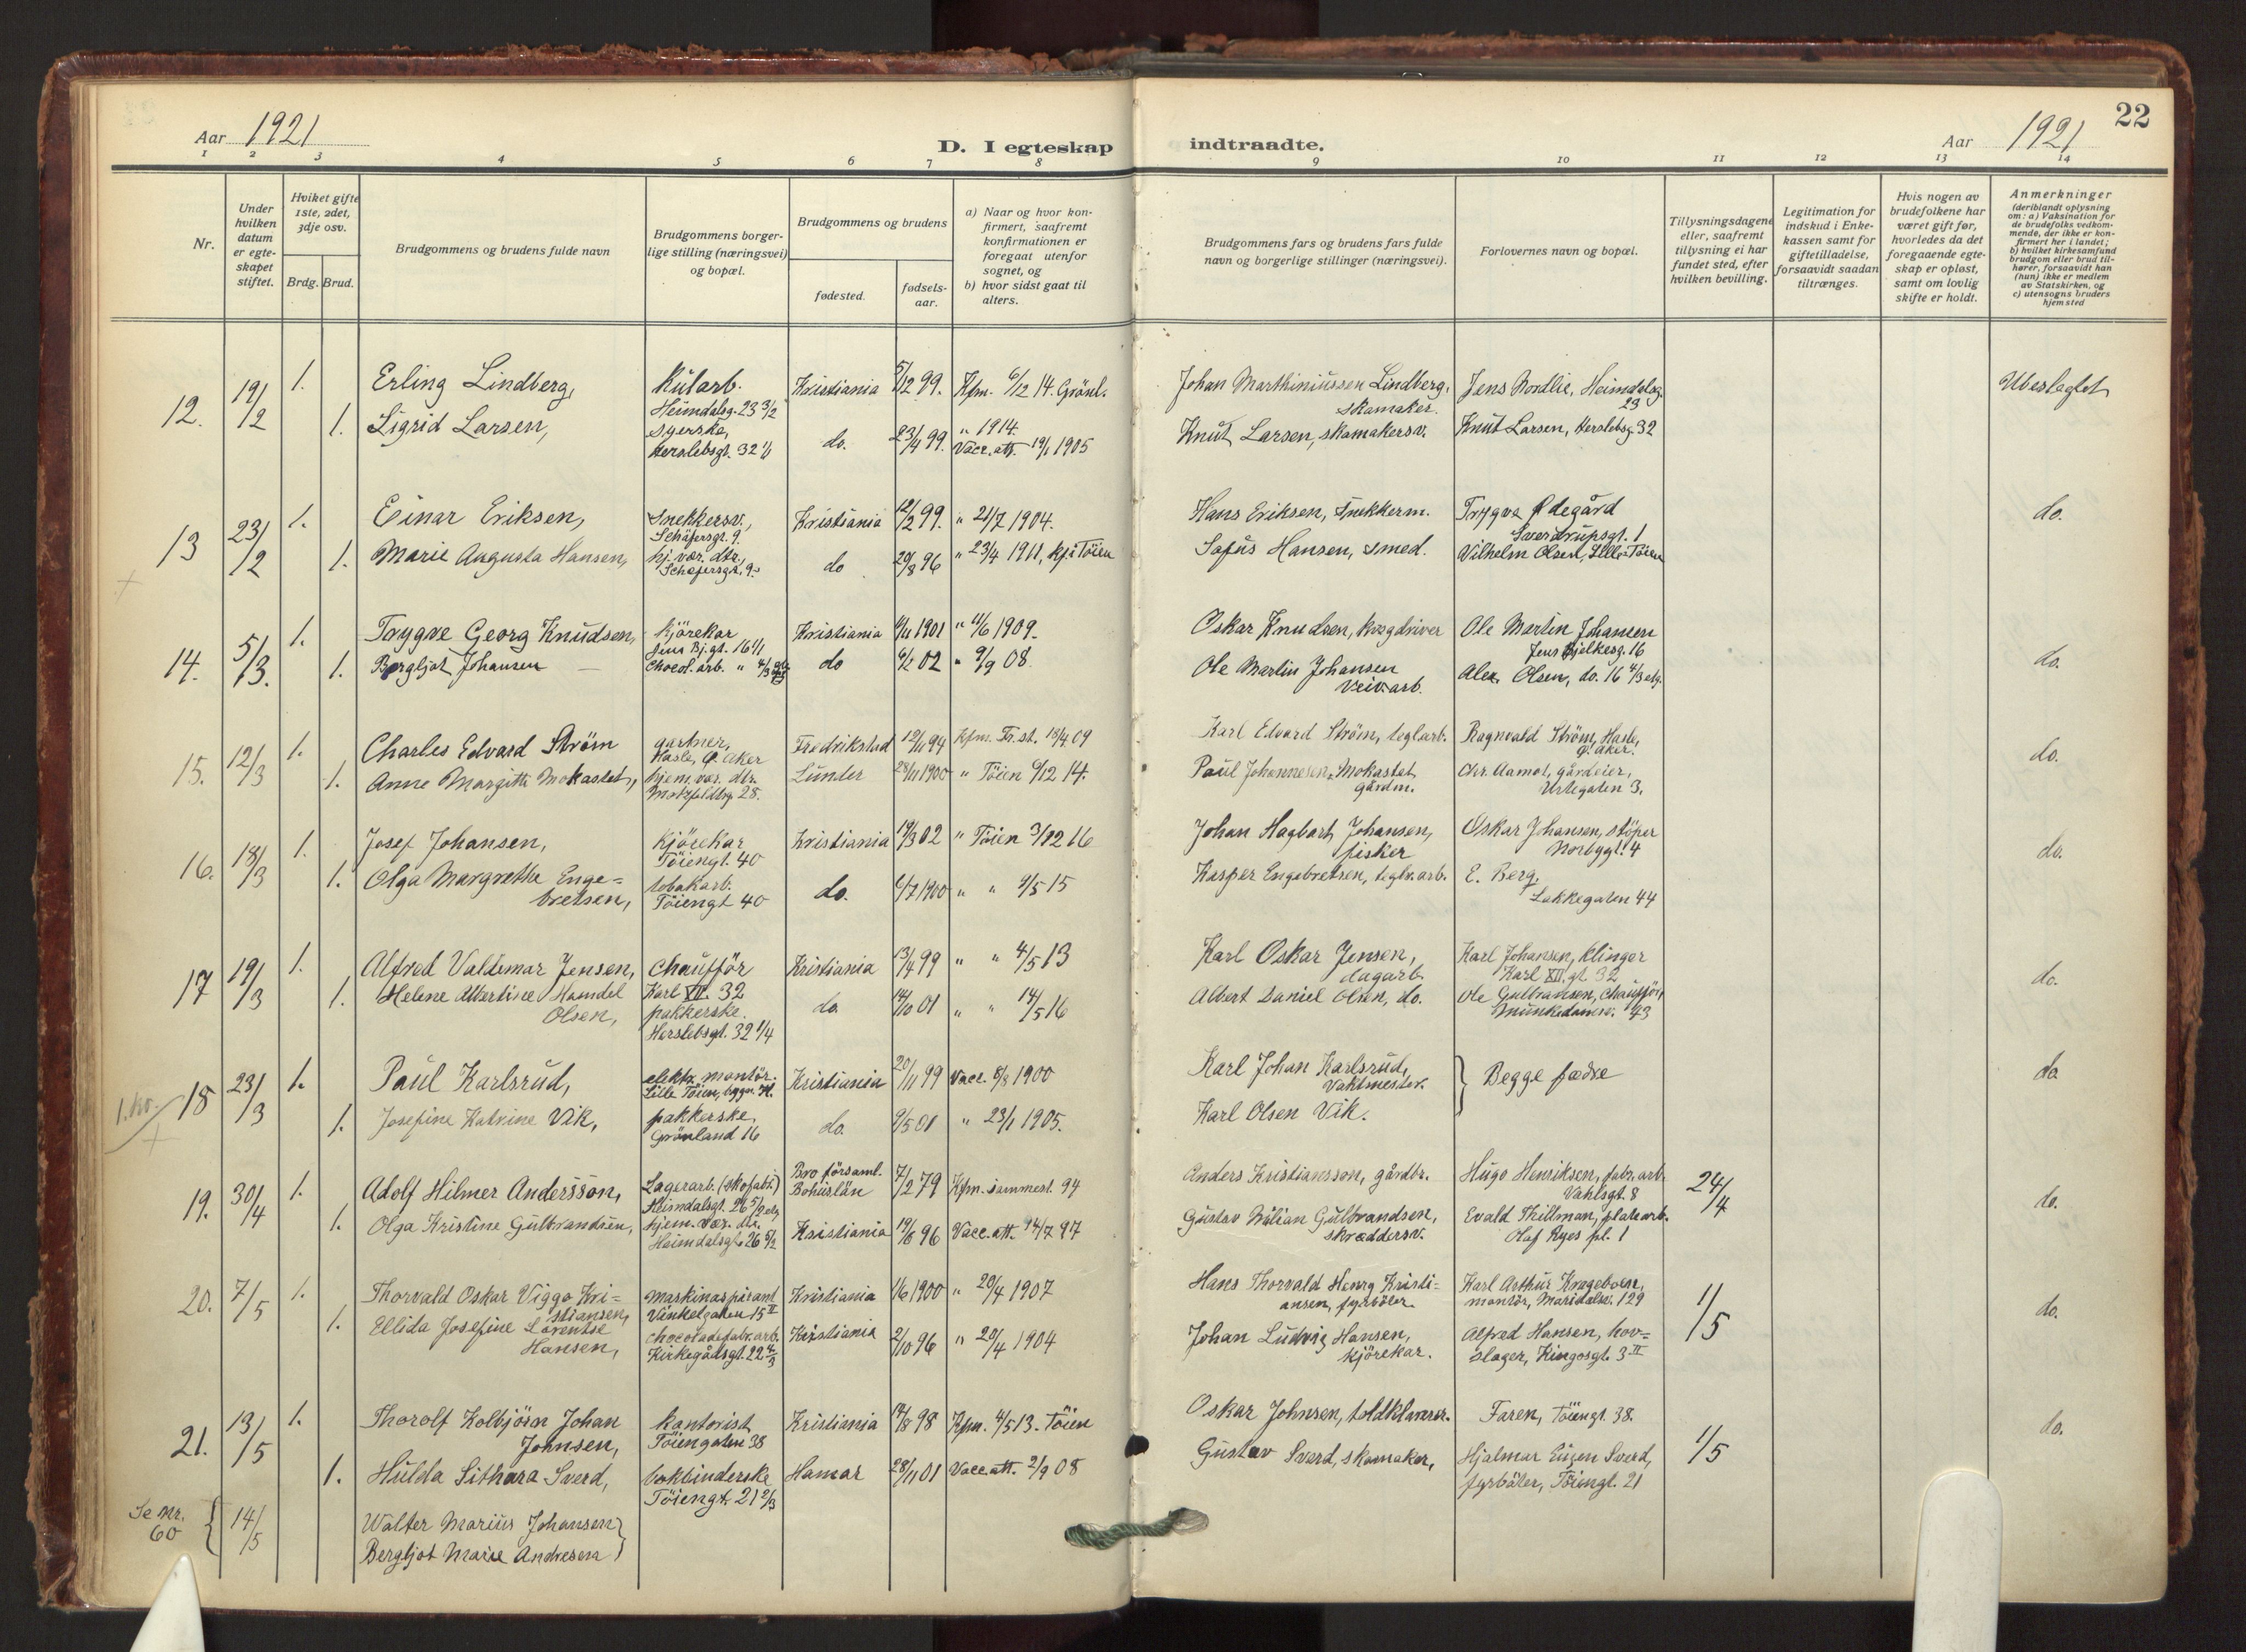 Aar 1921
D. I egteskap indtraadte.
Aar 1921
22
1 2 3 4 5 6 7 8 9 10 11 12 13 14
Nr.
Under hvilken datum er egteskapet stiftet.
Hviket gifte 1ste, 2det, 3dje osv.
Brdg. Brud.
Brudgommens og brudens fulde navn
Brudgommens borgerlige stilling (næringsvei) og bopæl.
Brudgommens og brudens
fødested.
fødselsaar.
a) Naar og hvor konfirmert, saafremt konfirmationen er foregaat utenfor sognet, og
b) hvor sidst gaat til alters.
Brudgommens fars og brudens fars fulde navn og borgerlige stillinger (næringsvei).
Forlovernes navn og bopæl.
Tillysningsdagene eller, saafremt tillysning ei har fundet sted, efter hvilken bevilling.
Legitimation for indskud i Enkekassen samt for giftetilladelse, forsaavidt saadan tiltrænges.
Hvis nogen av brudefolkene har været gift før, hvorledes da det foregaaende egteskap er opløst, samt om lovlig skifte er holdt.
Anmerkninger
(deriblandt oplysning om: a) Vaksination for de brudefolks vedkommende, der ikke er konfirmert her i landet; b) hvilket kirkesamfund brudgom eller brud tilhører, forsaavidt han (hun) ikke er medlem av Statskirken, og c) utensogns bruders hjemsted
12. 19/2 1. Erling Lindberg, Kularb. Heimdalsg. 23 3/2 Kristiania 5/12 99. Kfm. 6/12 14. Grönl. Johan Marthiniussen Lindberg, skomaker. Jens Nordlie, Heimdalsg. 23 Ubeslegtet
1. Sigrid Larsen, syerske, Herslebsgt. 32 1/1 do. 23/4 99. " 1914. Vacc. att. 19/1 1905 Knut Larsen, skomakersv. Knut Larsen, Herslebsg. 32
13 23/2 1. Einar Eriksen, Snekkersv., Schäfersgt. 9. Kristiania 12/2 99. " 21/7 1904. Hans Eriksen, Snekkerm. Trygve Ødegård Sverdrupsgt. 1 do.
1. Marie Augusta Hansen, hj. vær. dtr., Schäfersgt. 9. do 20/8 96 " 23/4 1911, Kf. i Töien Sofus Hansen, smed. Vilhelm Olsen, Lille-Töien
14. 5/3. 1. Trygve Georg Knudsen, kjörekar Jens Bj.gt. 16 1/1 Kristiania 1901 " 11/6 1909. Oskar Knudsen, Ole Martin Johansen Jens Bjelkesg. 16 do.
1. Bergljot Johansen — Chocol. arb. " 02 " 9/9 08. Ole Martin Johansen Veivarb. Alex. Olsen, do. 16 4/3 etg.
15. 12/3 1. Charles Edvard Ström gartner, Hasle, Ø. Aker Fredrikstad 12/11 94 Kfm. Fr.st. 18/4 09 Karl Edvard Ström, teglarb. Ragnvald Ström, Hasle, Ø. Aker. do.
1. Anne Margitte Mokastet, hjem. vær. dtr. Motzfeldtsg. 28. Lunder 28/11 1900 " Töien 6/12 14. Paul Johannesen Mokastet gårdm. Chr. Aamot, gårdeier, Urtegaten 3.
16. 18/3 1. Josef Johansen, kjörekar Töiengt. 40 Kristiania 19/3 02 " Töien 3/12 16 Johan Hagbart Johansen, fisker Oskar Johansen, stöper Norbygt. 4 do.
1. Olga Margrethe Engebretsen, tobakarb. Töiengt 40 do. 6/7 1900 " " 9/5 15 Kasper Engebretsen, teglv. arb. E. Berg, Lakkegaten 44
17 19/3 1. Alfred Valdemar Jensen, chaufför Karl XII. 32 Kristiania 13/4 99 " " 4/5 13 Karl Oskar Jensen, dagarb. Karl Johansen, Klinger Karl XII gt. 32 do.
1. Helene Albertine Hamdel Olsen, pakkerske. Herslebsgt. 32 1/4 do. 14/10 01 " " 14/5 16 Albert Daniel Olsen, do. Ole Gulbransen, Chaufför, Munkedamsv. 43
1. kr. 18 23/3 1. Paul Karlsrud, elektr. montör. Lille Töien, bygn. H. Kristiania 20/11 99 Vacc. 8/8 1900 Karl Johan Karlsrud, Vaktmester. } Begge fædre do
1. Josefine Katrine Vik, pakkerske, Grönland 16 do. 9/5 01 " 23/1 1905. Karl Olsen Vik.
19. 30/4 1. Adolf Hilmer Andersson, Lagerarb. (skofabr.) Heimdalsgt. 26 5/2 etg. Bro församl. Bohuslän 7/2 79 Kfm. sammest. 94 Anders Kristiansson, gårdbr. Hugo Henriksen, fabr. arb. Vahlsgt. 8 24/4 do.
1. Olga Kristine Gulbrandsen, hjem. vær. dtr. Heimdalsgt. 26 5/2 Kristiania 19/8 96 Vacc. att. 14/7 97 Gustav Gulbrandsen, skræddersv. Evald Thillman, platearb. Olaf Ryes pl. 1
20. 7/5 1. Thorvald Oskar Viggo Kristiansen, maskinaspirant Vinkelgaten 15 II Kristiania 1/6 1900 " 20/4 1907 Hans Thorvald Georg Kristiansen, fyrböter. Karl Arthur Krageboen, montör, Maridalsv. 129 1/5 do.
1. Ellida Josefine Lorentse Hansen, chocoladefabr. arb. Kirkegådsgt. 22 4/3 Kristiania 2/10 96 " 20/4 1904 Johan Ludvig Hansen, kjörekar. Alfred Hansen, hovslager, Kingosgt. 3 II
21. 13/5 1. Thorolf Kolbjörn Johan Johnsen, kontorist Töiengaten 38 Kristiania 17/8 98 Kfm. 4/5 13. Töien Oskar Johnsen, toldklarerer. Faren, Töiengt. 38. 1/5 do.
1. Hulda Sithara Sverd, bokbinderske Töiengt. 21 2/3 Hamar 28/11 01 Vacc. att. 2/9 08 Gustav Sverd, skomaker, Hjalmar Eugen Sverd, fyrböter, Töiengt. 21
Se Nr. 60 { 14/5 Walter Marius Johansen }
Bergljot Marie Andresen